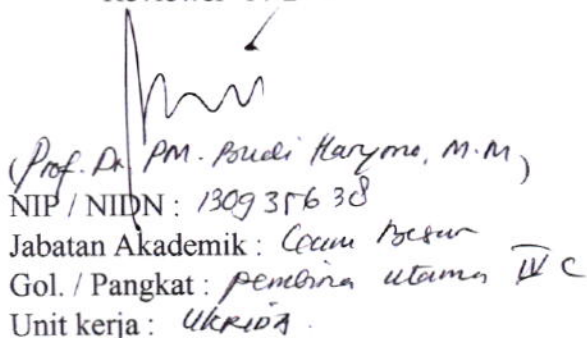 (Prof. Dr. PM. Budi Haryono, M.M)
NIP / NIDN : 130935638
Jabatan Akademik : Guru Besar
Gol. / Pangkat : pembina utama IV C
Unit kerja : UKRIDA.